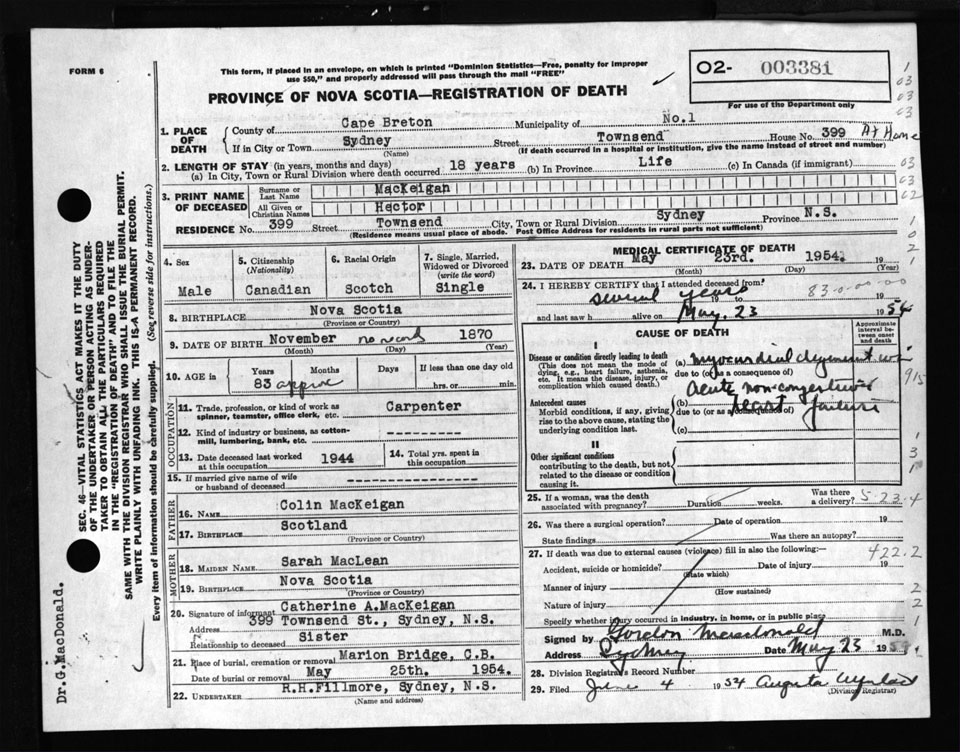 FORM 6
This form, if placed in an envelope, on which is printed "Dominion Statistics—Free, penalty for improper
use $50," and properly addressed will pass through the mail "FREE"
O2- 003381
For use of the Department only
PROVINCE OF NOVA SCOTIA—REGISTRATION OF DEATH
1. PLACE OF DEATH
County of Cape Breton Municipality of No.1
If in City or Town Sydney Street Townsend House No. 399 At Home
(Name) (If death occurred in a hospital or institution, give the name instead of street and number)
2. LENGTH OF STAY (in years, months and days)
(a) In City, Town or Rural Division where death occurred 18 years (b) In Province Life (c) In Canada (if immigrant)
3. PRINT NAME OF DECEASED
Surname or Last Name MacKeigan
All Given or Christian Names Hector
RESIDENCE No. 399 Street Townsend City, Town or Rural Division Sydney Province N.S.
(Residence means usual place of abode. Post Office Address for residents in rural parts not sufficient)
4. Sex
Male
5. Citizenship
(Nationality)
Canadian
6. Racial Origin
Scotch
7. Single, Married,
Widowed or Divorced
(write the word)
Single
8. BIRTHPLACE Nova Scotia
(Province or Country)
9. DATE OF BIRTH November no record 1870
(Month) (Day) (Year)
10. AGE in Years Months Days If less than one day old
83 approx hrs. or min.
OCCUPATION
11. Trade, profession, or kind of work as
spinner, teamster, office clerk, etc. Carpenter
12. Kind of industry or business, as cotton-
mill, lumbering, bank, etc. ---------
13. Date deceased last worked
at this occupation 1944
14. Total yrs. spent in
this occupation
15. If married give name of wife
or husband of deceased ---------------
FATHER
16. NAME Colin MacKeigan
17. BIRTHPLACE Scotland
(Province or Country)
MOTHER
18. MAIDEN NAME Sarah MacLean
19. BIRTHPLACE Nova Scotia
(Province or Country)
20. Signature of informant Catherine A.MacKeigan
Address 399 Townsend St., Sydney, N.S.
Relationship to deceased Sister
21. Place of burial, cremation or removal Marion Bridge, C.B.
Date of burial or removal May 25th. 1954.
22. UNDERTAKER R.H.Fillmore, Sydney, N.S.
(Name and address)
MEDICAL CERTIFICATE OF DEATH
23. DATE OF DEATH May 23rd. 1954.
(Month) (Day) (Year)
24. I HEREBY CERTIFY that I attended deceased from:
several years 19 to 83-0-00-00 19
and last saw h alive on May, 23 1954
CAUSE OF DEATH
Approximate
interval between
onset
and death
I
Disease or condition directly leading to death
(This does not mean the mode of
dying, e.g., heart failure, asthenia,
etc. It means the disease, injury, or
complication which caused death.)
(a) myocardial
due to (or as a consequence of)
Acute non-congestive
Antecedent causes
Morbid conditions, if any, giving
rise to the above cause, stating the
underlying condition last.
(b) heart failure
due to (or as a consequence of)
(c)
II
Other significant conditions
contributing to the death, but not
related to the disease or condition
causing it.
25. If a woman, was the death
associated with pregnancy? Duration weeks. Was there
a delivery? 5-23-4
26. Was there a surgical operation? Date of operation 19
State findings Was there an autopsy?
27. If death was due to external causes (violence) fill in also the following:— 422.2
Accident, suicide or homicide? Date of injury 19
(State which)
Manner of injury
(How sustained)
Nature of injury
Specify whether injury occurred in industry, in home, or in public place
Signed by Gordon Macdonald M.D.
Address Sydney Date May 23 1954
28. Division Registrars Record Number
29. Filed June 4 1954 Augusta
(Division Registrar)
SEC. 46—VITAL STATISTICS ACT MAKES IT THE DUTY
OF THE UNDERTAKER OR PERSON ACTING AS UNDER-
TAKER TO OBTAIN ALL THE PARTICULARS REQUIRED
IN THE "REGISTRATION OF DEATH" AND TO FILE THE
SAME WITH THE DIVISION REGISTRAR WHO SHALL ISSUE THE BURIAL PERMIT.
WRITE PLAINLY WITH UNFADING INK. THIS IS A PERMANENT RECORD.
Every item of information should be carefully supplied. (See reverse side for instructions.)
Dr.G.MacDonald.
1
03
03
03
03
03
02
1
0
2
1
915
1
3
1
2
2
1